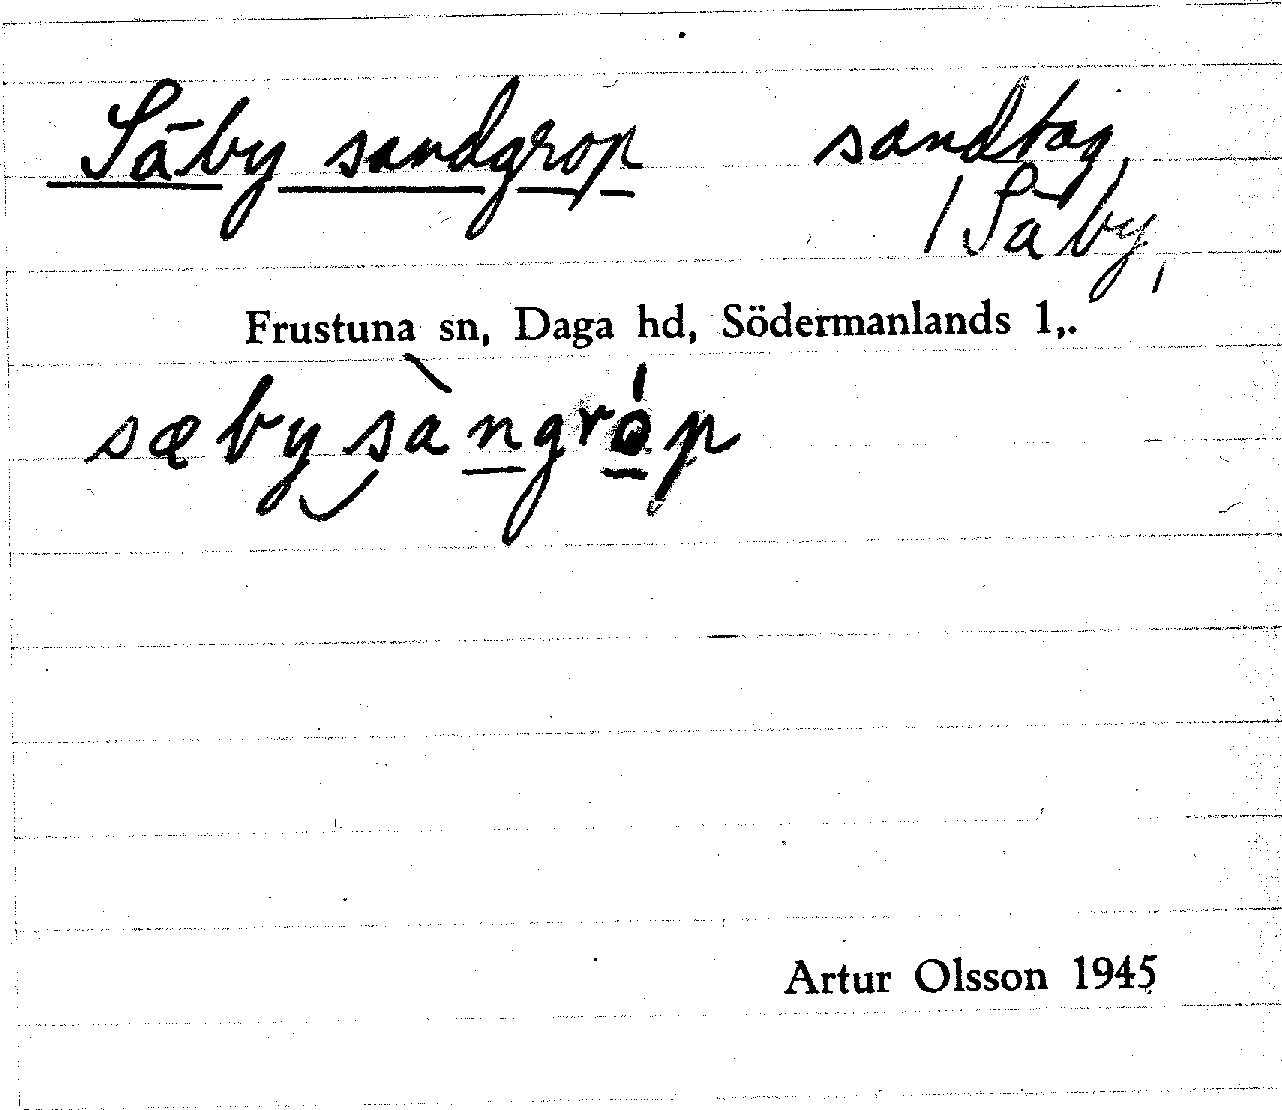 Säby sandgrop sandtag,
/ Säby,
Frustuna sn, Daga hd, Södermanlands l,.
sæby sàngróp
Artur Olsson 1945